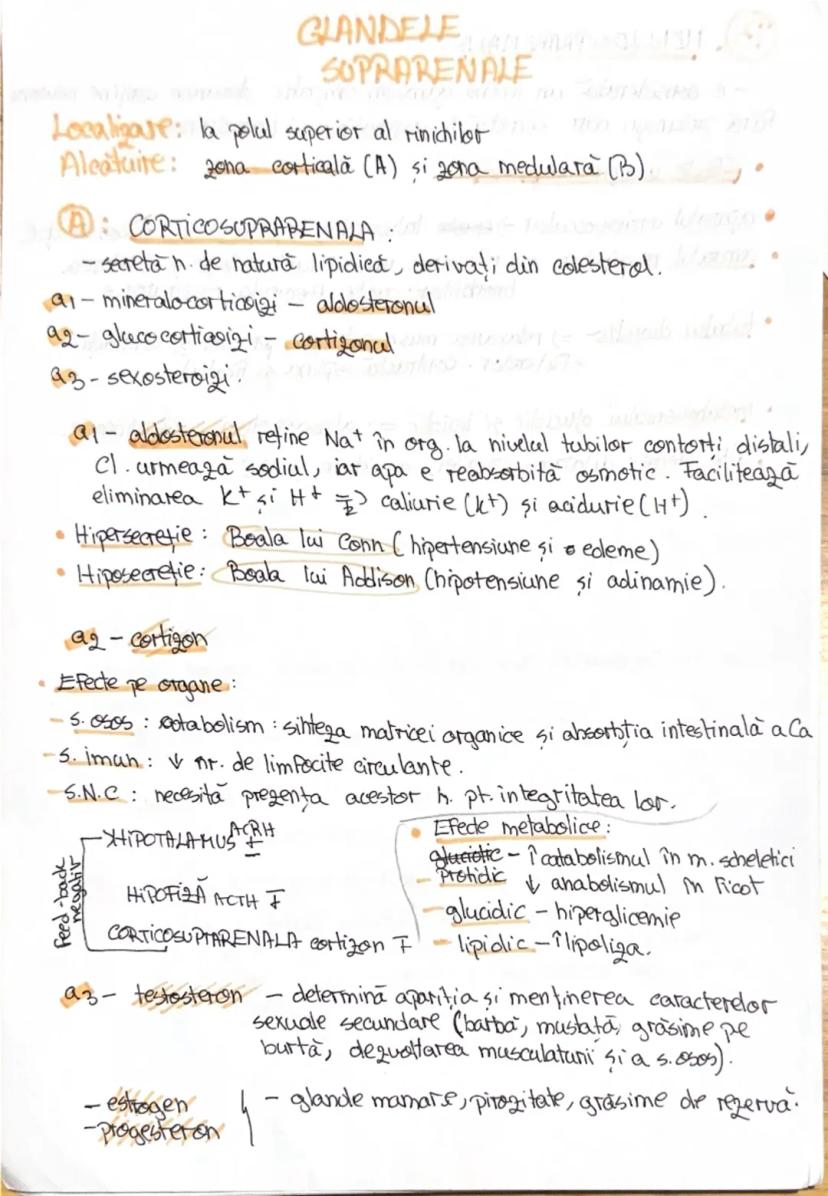 GLANDELE
SUPRARENALE
Localizare: la polul superior al rinichilor
Alcătuire: zona corticală (A) și zona medulară (B).
A: CORTICOSUPRARENALA:
- secretă h. de natură lipidică, derivați din colesterol.
a1 - mineralocorticoizi - aldosteronul
a2 - glucocorticoizi - cortizonul
a3 - sexosteroizi.
a1 - aldosteronul reține Na+ în org. la nivelul tubilor contorți distali,
Cl. urmează sodiul, iar apa e reabsorbită osmotic. Facilitează
eliminarea K+ și H+ => caliurie (K+) și acidurie (H+).
• Hipersecreție: Boala lui Conn (hipertensiune și edeme)
• Hiposecreție: Boala lui Addison (hipotensiune și adinamie).
a2 - cortizon
• Efecte pe organe:
- s. osos: catabolism: sinteza matricei organice și absorbția intestinală a Ca
- s. imun: ↓ nr. de limfocite circulante.
- S.N.C: necesită prezența acestor h. pt. integritatea lor.
Feed-back negativ
HIPOTALAMUS CRH ±
HIPOFIZĂ ACTH ∓
CORTICOSUPRARENALA cortizon ∓
• Efecte metabolice:
glucidic - ↑ catabolismul în m. scheletici
- Protidic ↓ anabolismul în ficat
- glucidic - hiperglicemie
- lipidic - ↑ lipoliza.
a3 - testosteron - determină apariția și menținerea caracterelor
sexuale secundare (barbă, mustață, grăsime pe
burtă, dezvoltarea musculaturii și a s. osos).
- estrogen } - glande mamare, pirozitate, grăsime de rezervă.
- progesteron